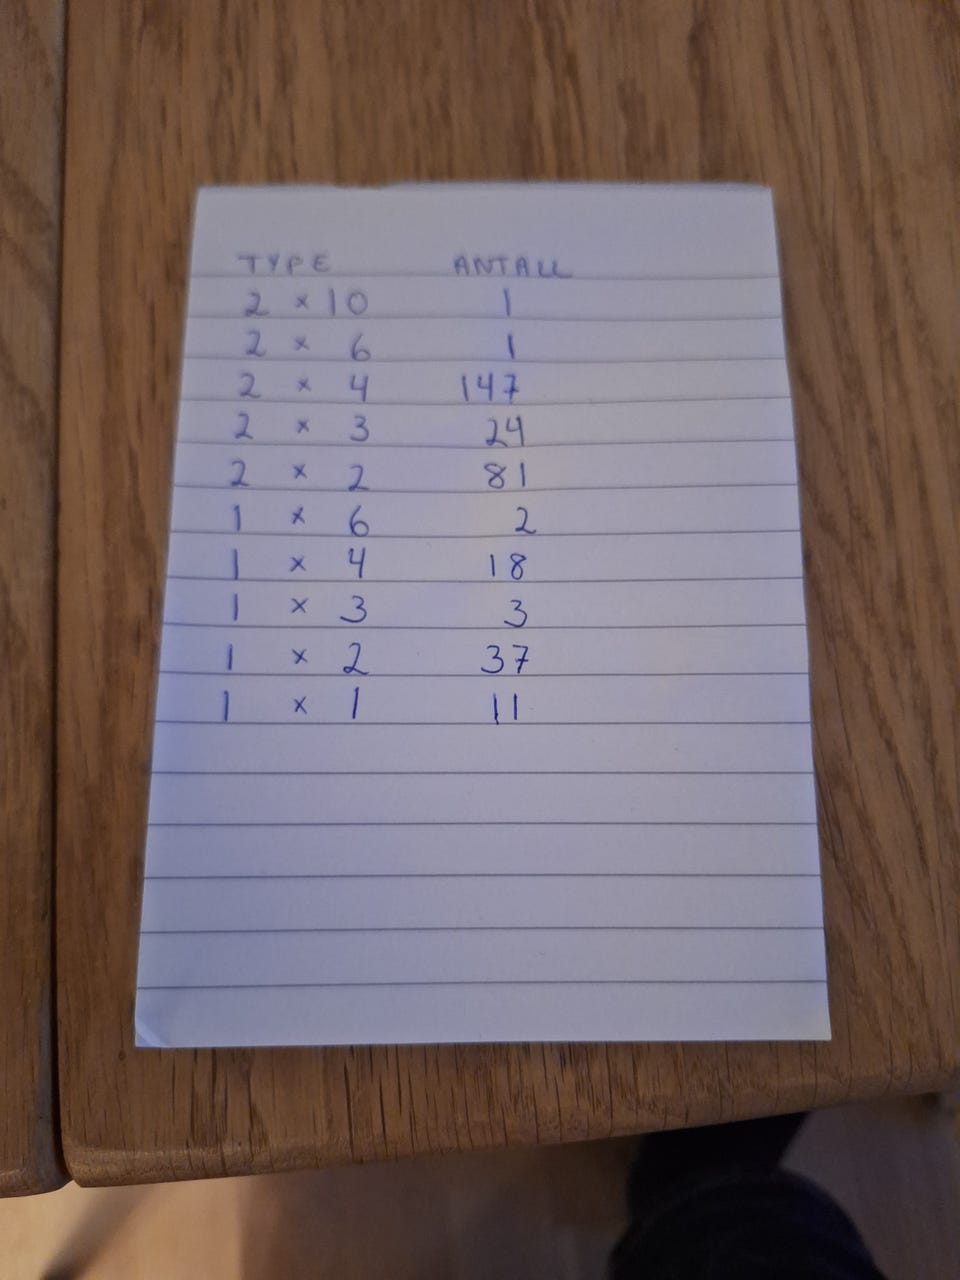 TYPE ANTALL
2 × 10 1
2 × 6 1
2 × 4 147
2 × 3 24
2 × 2 81
1 × 6 2
1 × 4 18
1 × 3 3
1 × 2 37
1 × 1 11